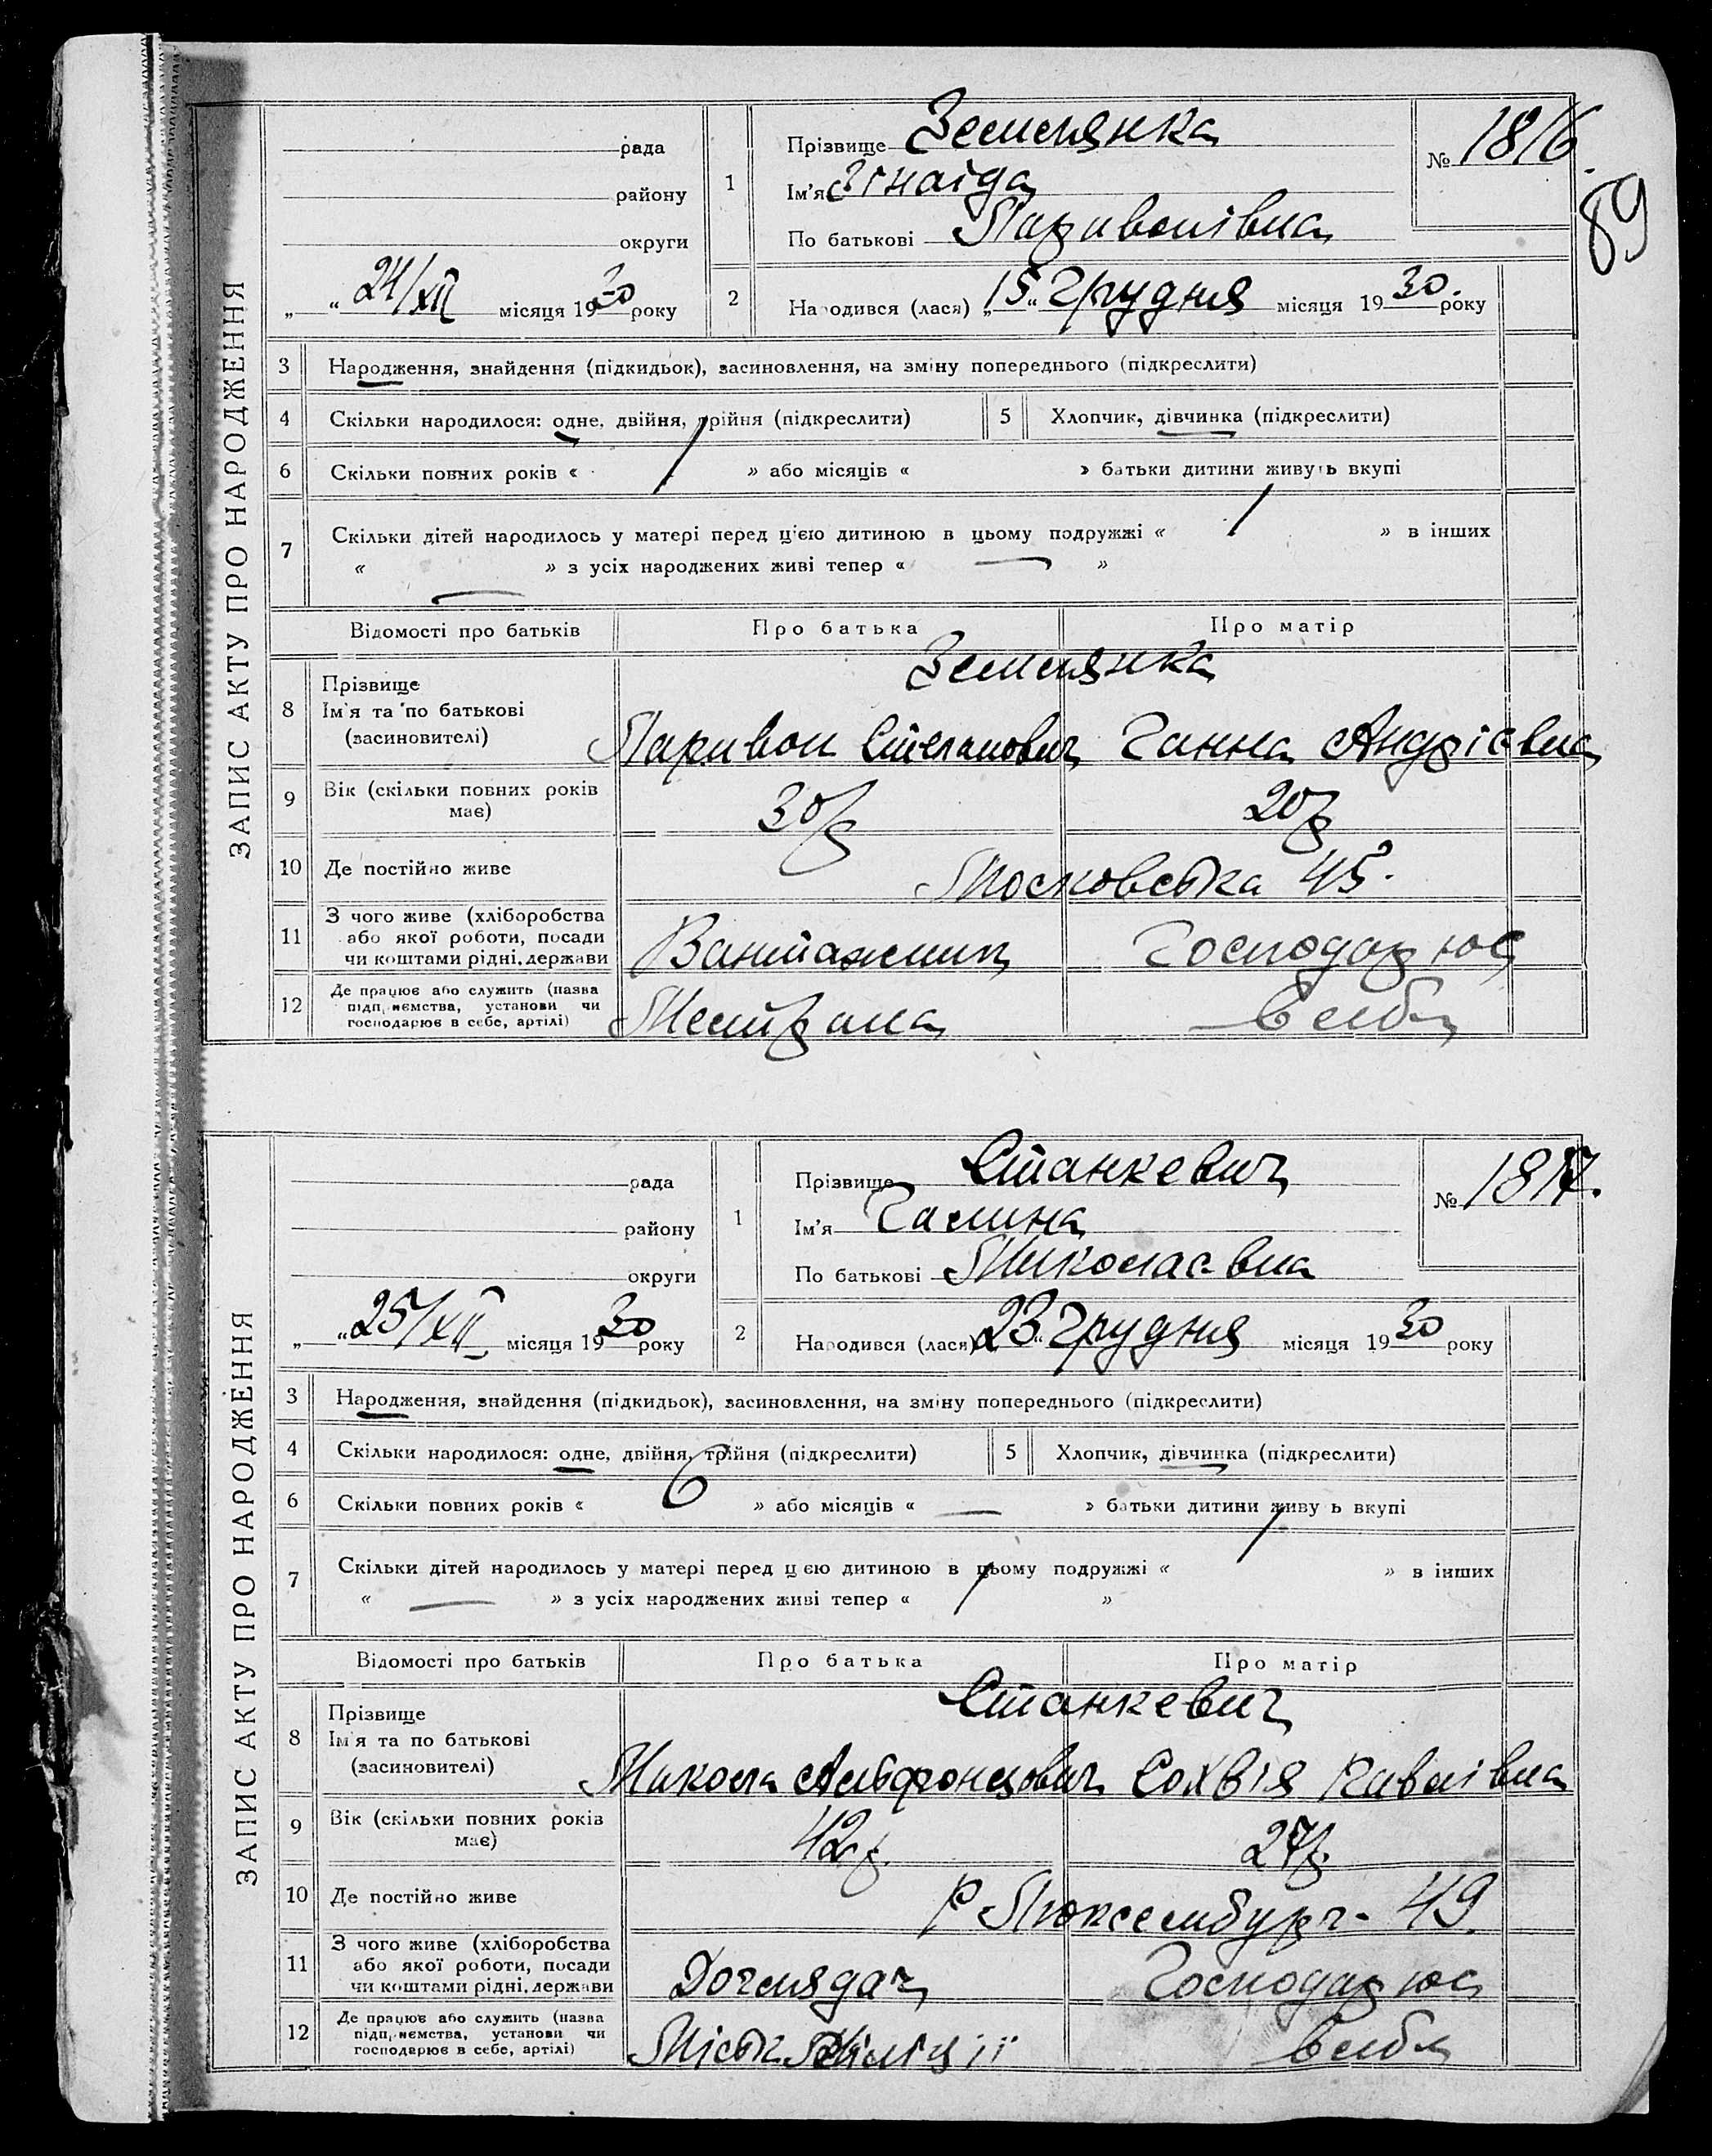 89
ЗАПИС АКТУ ПРО НАРОДЖЕННЯ
рада
району
округи
„ “ 24/XII місяця 1930 року
1 Прізвище Землянка
Ім'я Зінаїда
По батькові Паривонівна
№ 1816
2 Народився (лася) „15“ Грудня місяця 1930. року
3 Народження, знайдення (підкидьок), засиновлення, на зміну попереднього (підкреслити)
4 Скільки народилося: одне, двійня, трійня (підкреслити) 5 Хлопчик, дівчинка (підкреслити)
6 Скільки повних років « 1 » або місяців « » батьки дитини живуть вкупі
7 Скільки дітей народилось у матері перед цією дитиною в цьому подружжі « 1 » в інших
« — » з усіх народжених живі тепер « — »
Відомості про батьків Про батька Про матір
8 Прізвище
Ім'я та по батькові
(засиновителі)
Землянка
Паривон Степанович Ганна Андрієвна
9 Вік (скільки повних років
має)
30 р 20 р
10 Де постійно живе Московська 45.
11 З чого живе (хліборобства
або якої роботи, посади
чи коштами рідні, держави
Вантажник Господарює
12 Де працює або служить (назва
підприємства, установи чи
господарює в себе, артілі)
в себе
ЗАПИС АКТУ ПРО НАРОДЖЕННЯ
рада
району
округи
„ “ 25/XII місяця 1930 року
1 Прізвище Станкевич
Ім'я Галина
По батькові Миколаєвна
№ 1817.
2 Народився (лася) „23“ Грудня місяця 1930 року
3 Народження, знайдення (підкидьок), засиновлення, на зміну попереднього (підкреслити)
4 Скільки народилося: одне, двійня, трійня (підкреслити) 5 Хлопчик, дівчинка (підкреслити)
6 Скільки повних років « 6 » або місяців « — » батьки дитини живуть вкупі
7 Скільки дітей народилось у матері перед цією дитиною в цьому подружжі « 1 » в інших
« — » з усіх народжених живі тепер « 1 »
Відомості про батьків Про батька Про матір
8 Прізвище
Ім'я та по батькові
(засиновителі)
Станкевич
Микола Альфонцович Сохвія Павлівна
9 Вік (скільки повних років
має)
42 р. 27 р.
10 Де постійно живе Р-Люксембург- 49.
11 З чого живе (хліборобства
або якої роботи, посади
чи коштами рідні, держави
Доглядач Господарює
12 Де працює або служить (назва
підприємства, установи чи
господарює в себе, артілі)
Міськ Міліції в себе